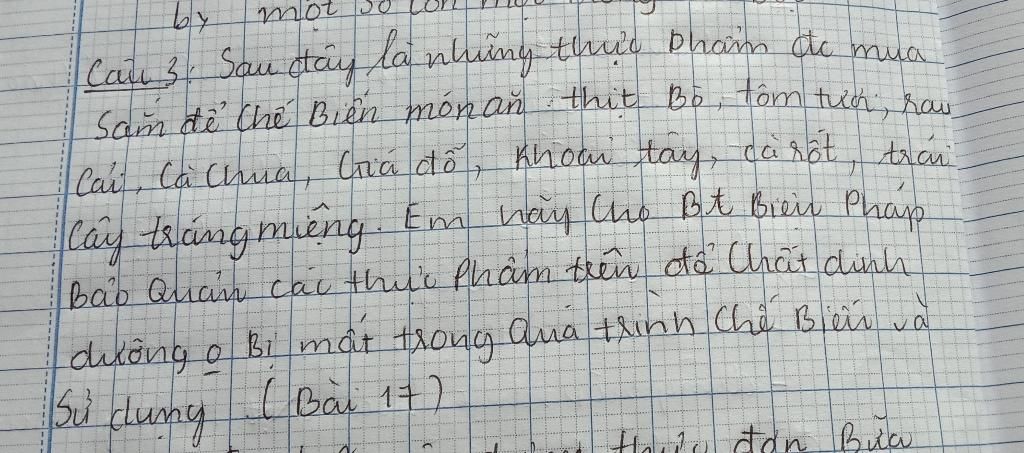 by một số con
Câu 3: Sau đây là những thực phẩm đc mua
sắm để chế Biến món ăn thịt Bò, tôm tươi, rau
Cải, Cà Chua, Giá đỗ, Khoai tây, cà rốt, trái
cây tráng miệng. Em hãy Cho Bt Biện Pháp
Bảo Quản các thực Phẩm trên để Chất dinh
dưỡng o Bị mất trong Quá trình Chế Biến và
Sử dụng (Bài 17)
thực đơn Bữa